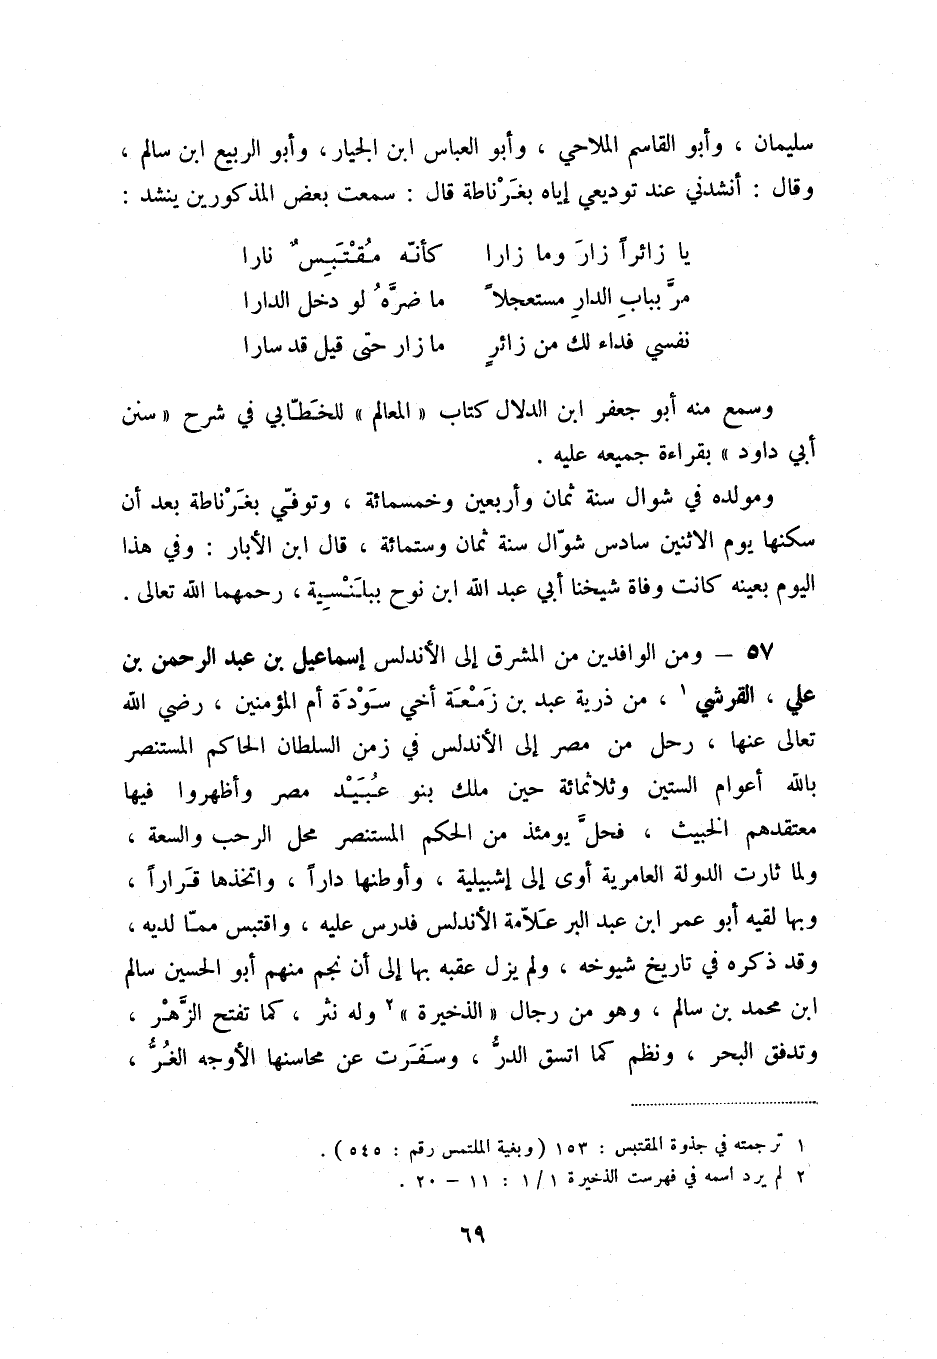 سليمان ، وأبو القاسم الملاحي ، وأبو العباس ابن الجيار ، وأبو الربيع ابن سالم ،
وقال : أنشدني عند توديعي إياه بغَرْناطة قال : سمعت بعض المذكورين ينشد :
يا زائراً زارَ وما زارا كأنّه مُقْتَبِسٌ نارا
مرَّ ببابِ الدارِ مستعجلاً ما ضرَّهُ لو دخل الدارا
نفسي فداء لك من زائرٍ ما زار حتى قيل قد سارا
وسمع منه أبو جعفر ابن الدلال كتاب « المعالم » للخَطّابي في شرح « سنن
أبي داود » بقراءة جميعه عليه .
ومولده في شوال سنة ثمان وأربعين وخمسمائة ، وتوفّي بغَرْناطة بعد أن
سكنها يوم الاثنين سادس شوّال سنة ثمان وستمائة ، قال ابن الأبار : وفي هذا
اليوم بعينه كانت وفاة شيخنا أبي عبد الله ابن نوح ببلَنْسِية ، رحمهما الله تعالى .
٥٧ – ومن الوافدين من المشرق إلى الأندلس إسماعيل بن عبد الرحمن بن
علي ، القرشي ١ ، من ذرية عبد بن زَمْعَة أخي سَوْدَة أم المؤمنين ، رضي الله
تعالى عنها ، رحل من مصر إلى الأندلس في زمن السلطان الحاكم المستنصر
بالله أعوام الستين وثلاثمائة حين ملك بنو عُبَيْد مصر وأظهروا فيها
معتقدهم الخبيث ، فحلَّ يومئذ من الحكم المستنصر محل الرحب والسعة ،
ولما ثارت الدولة العامرية أوى إلى إشبيلية ، وأوطنها داراً ، واتخذها قَراراً ،
وبها لقيه أبو عمر ابن عبد البر عَلاّمة الأندلس فدرس عليه ، واقتبس ممّا لديه ،
وقد ذكره في تاريخ شيوخه ، ولم يزل عقبه بها إلى أن نجم منهم أبو الحسين سالم
ابن محمد بن سالم ، وهو من رجال « الذخيرة » ٢ وله نثر ، كما تفتح الزَّهْر ،
وتدفق البحر ، ونظم كما اتسق الدرُّ ، وسَفَرَت عن محاسنها الأوجه الغُرُّ ،
١ ترجمته في جذوة المقتبس : ١٥٣ ( وبغية الملتمس رقم : ٥٤٥ ) .
٢ لم يرد اسمه في فهرست الذخيرة ١/١ : ١١ – ٢٠ .
٦٩